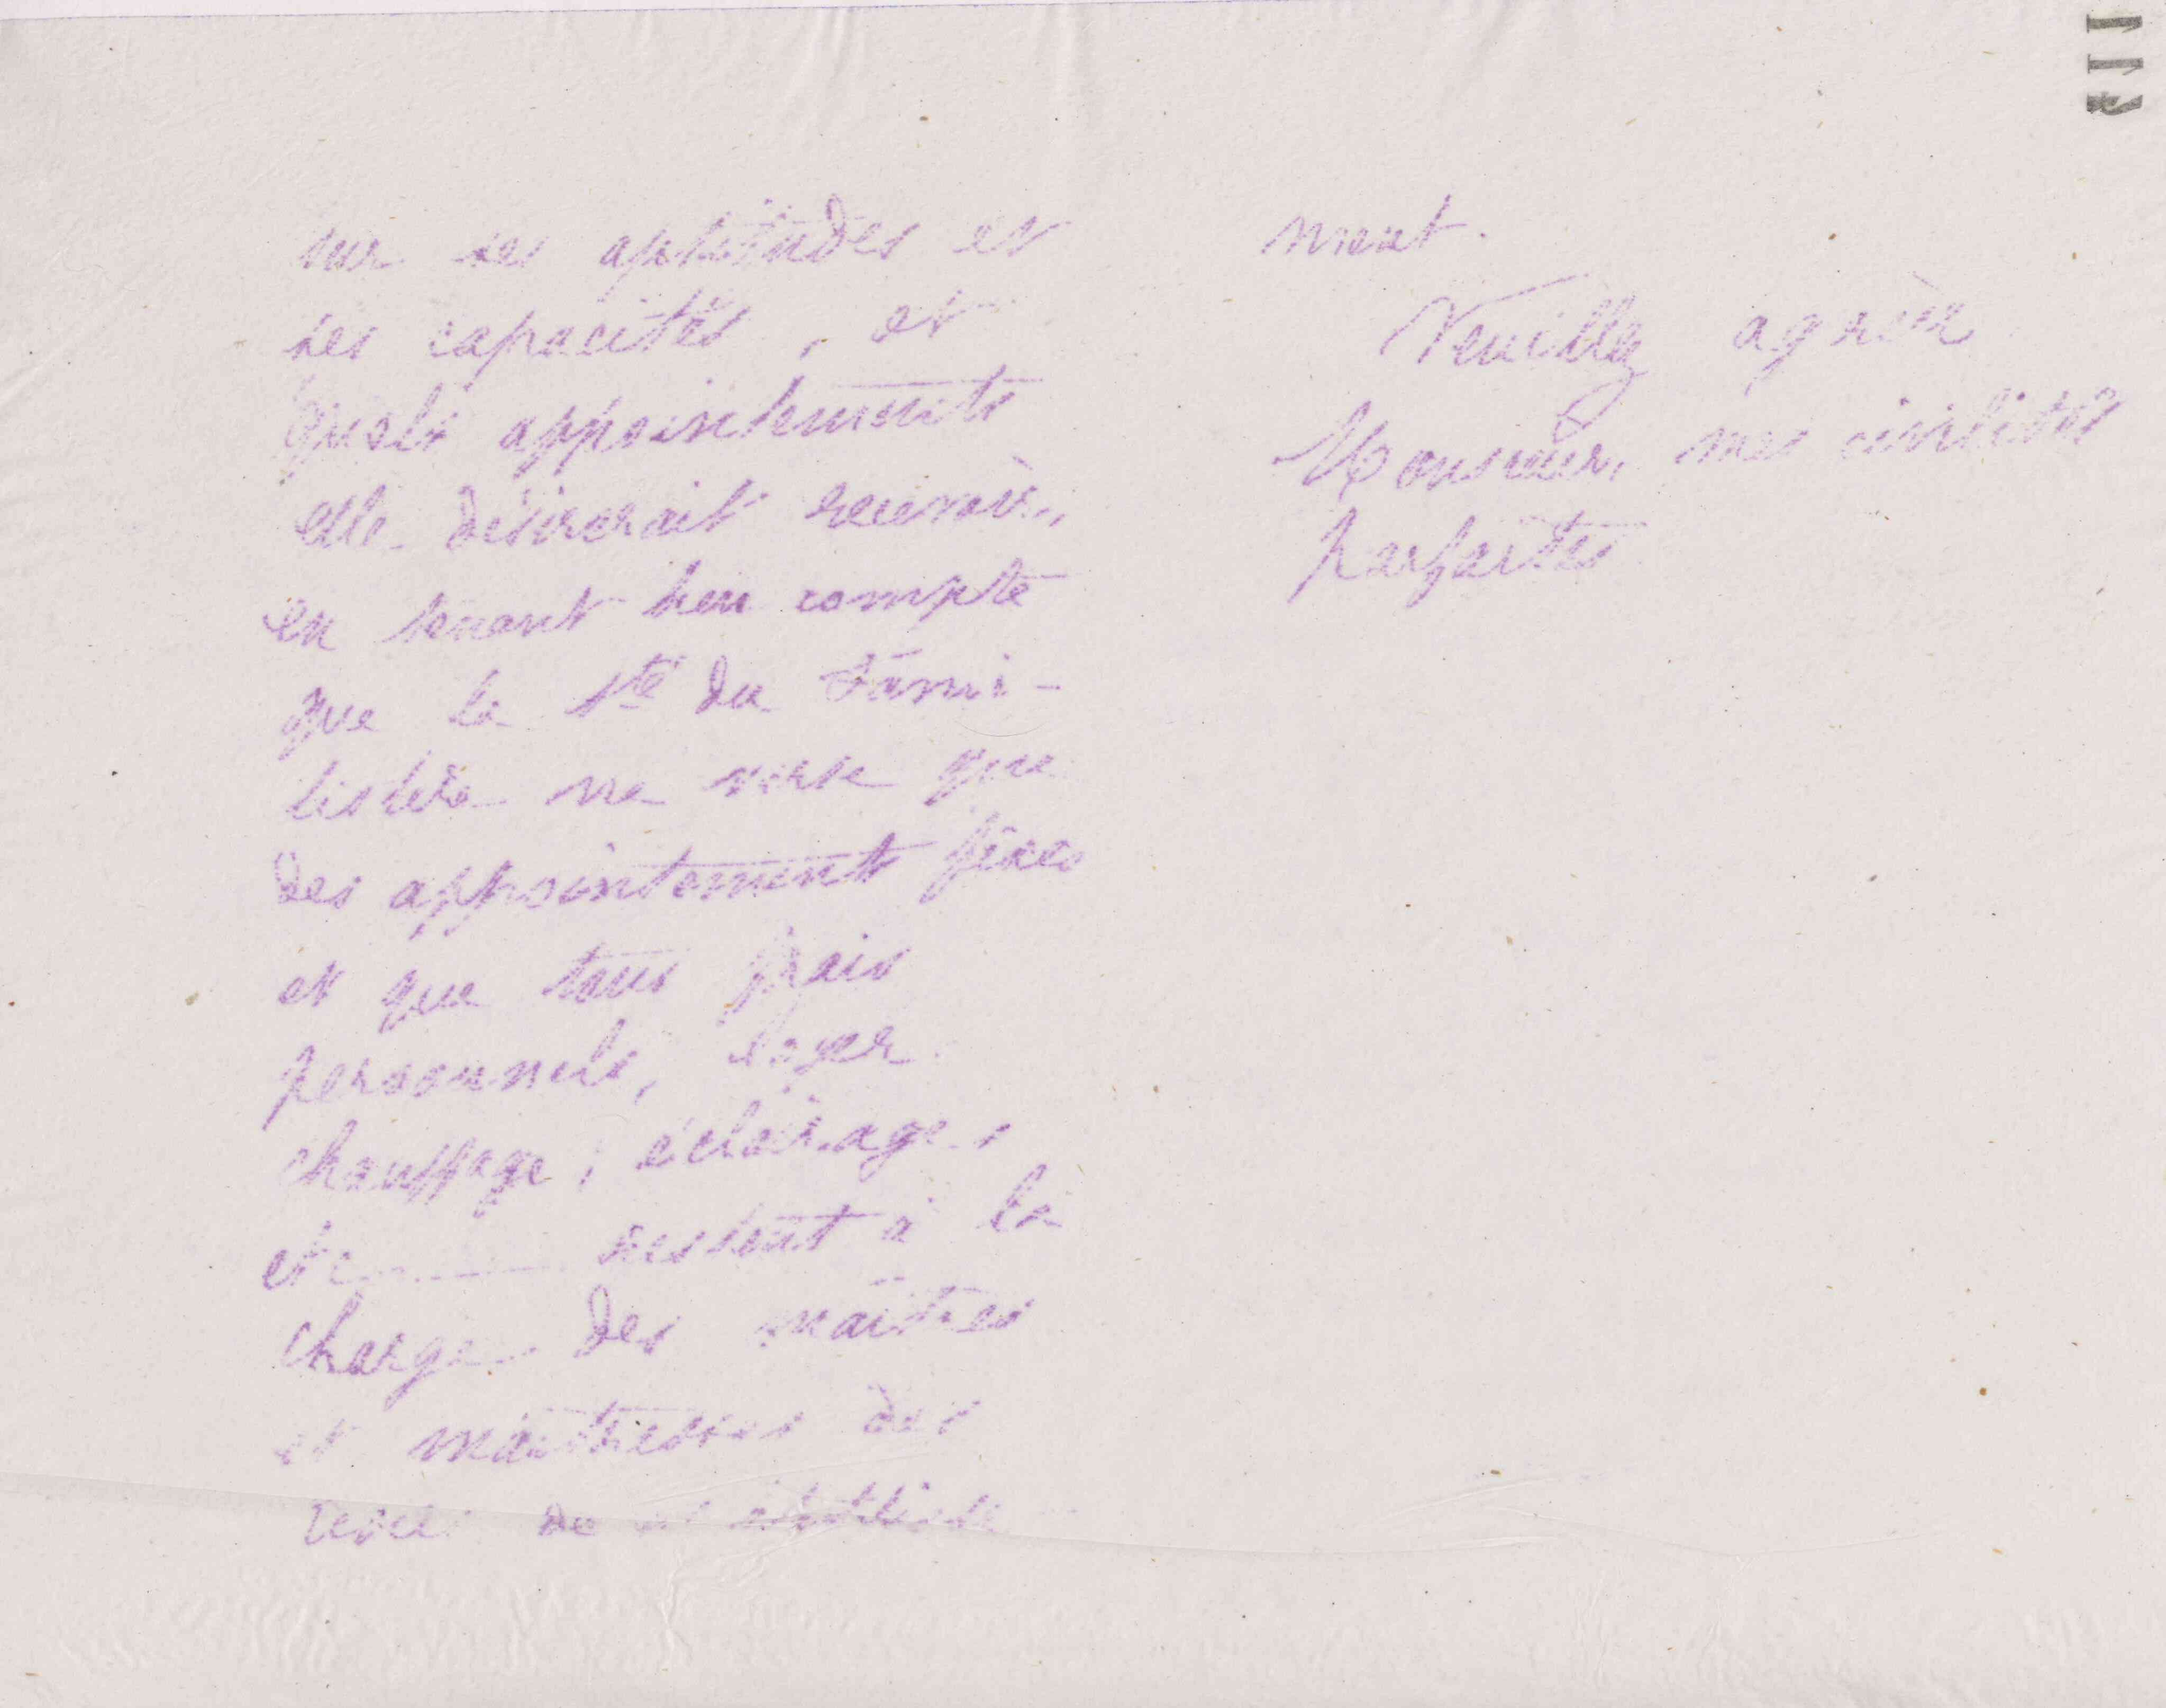 sur ses aptitudes et
ses capacités, et
quels appointements
elle désirerait recevoir,
en tenant bien compte
que la Sté du Fami-
listère ne verse que
des appointements fixes
et que tous frais
personnels, loyer
chauffage, éclairage,
etc restent à la
charge des maîtres
et maîtresses des
de
ment.
Veuillez agréer
Monsieur, mes civilités
parfaites